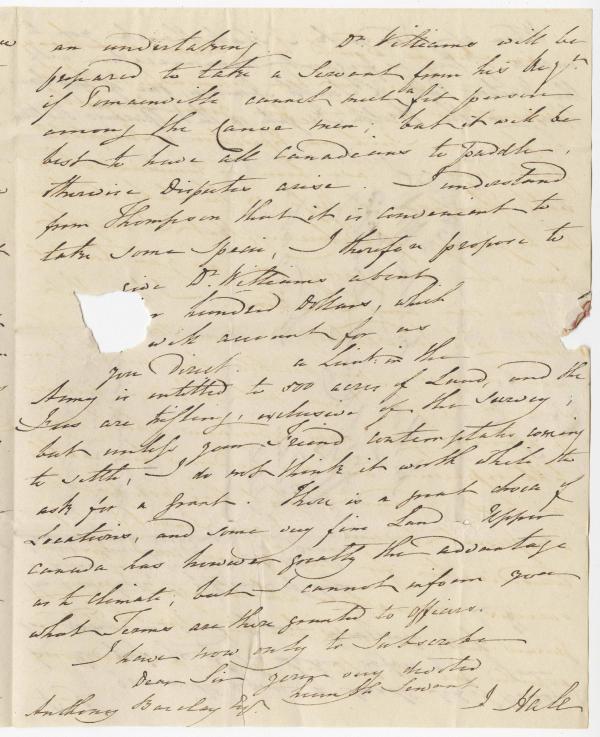 an undertaking. Dr. Williams will be
prepared to take a Servant from his Regt.
if Tomainville cannot meet a fit person
among the Canoe men; but it will be
best to have all Canadians to paddle,
otherwise Disputes arise. I understand
from Thompson that it is convenient to
take some Specie, I therefore propose to
give Dr. Williams about
hundred Dollars, which
will account for as
you Direct. a Lieut. in the
Army is entitled to 500 acres of Land, and the
Fees are trifling, exclusive of the Survey;
but unless your Friend contemplates coming
to settle, I do not think it worth while to
ask for a Grant. There is a great choice of
Locations, and some very fine Land. Upper
Canada has however greatly the advantage
as to climate; but I cannot inform you
what Terms are there granted to officers.
I have now only to Subscribe
Dear Sir your very devoted
humble Servant
Anthony Barclay Esqr. J Hale